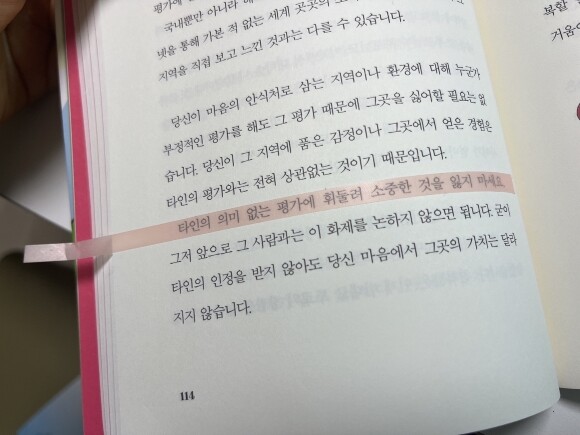 평가에
국내뿐만 아니라 해
넷을 통해 가본 적 없는 세계 곳곳의
지역을 직접 보고 느낀 것과는 다를 수 있습니다.
당신이 마음의 안식처로 삼는 지역이나 환경에 대해 누군가
부정적인 평가를 해도 그 평가 때문에 그곳을 싫어할 필요는 없
습니다. 당신이 그 지역에 품은 감정이나 그곳에서 얻은 경험은
타인의 평가와는 전혀 상관없는 것이기 때문입니다.
타인의 의미 없는 평가에 휘둘려 소중한 것을 잃지 마세요
그저 앞으로 그 사람과는 이 화제를 논하지 않으면 됩니다. 굳이
타인의 인정을 받지 않아도 당신 마음에서 그곳의 가치는 달라
지지 않습니다.
114
복합
거움이